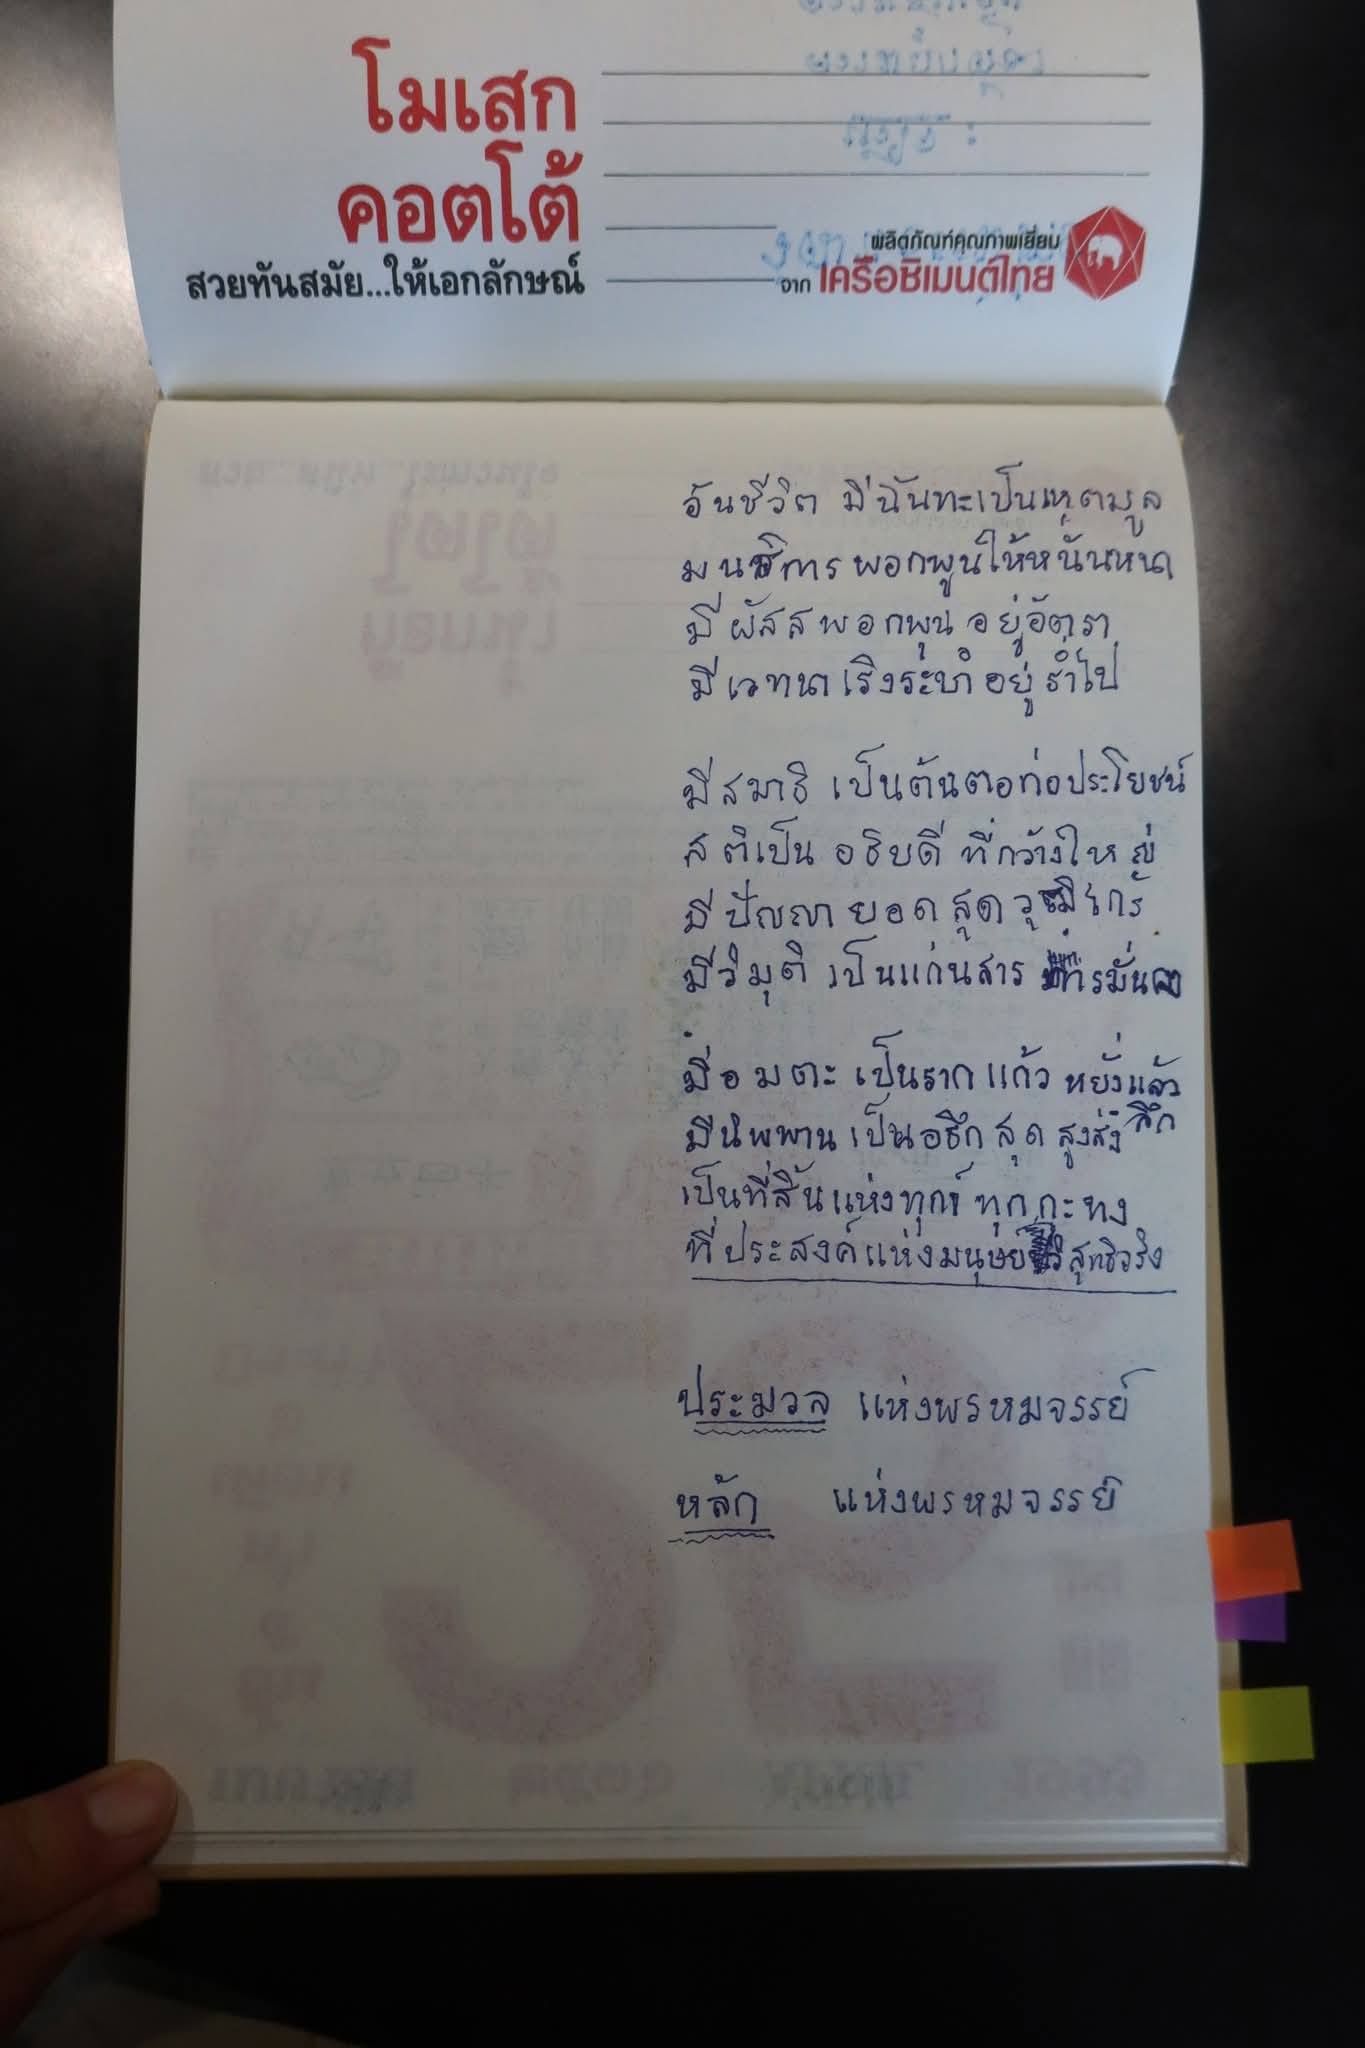 โมเสก
คอตโต้
สวยทันสมัย...ให้เอกลักษณ์
ผลิตภัณฑ์คุณภาพเยี่ยม
จาก เครือซิเมนต์ไทย
อันชีวิต มีฉันทะเป็นเหตุมูล
มนสิการ พอกพูนให้หนั่นหนา
มีผัสส พอกพูน อยู่อัตรา
มีเวทนา เริงระบำ อยู่ร่ำไป
มีสมาธิ เป็นต้นตอก่อประโยชน์
สติเป็น อธิบดี ที่กว้างใหญ่
มีปัญญา ยอดสุด วุฒิไกร
มีวิมุติ เป็นแก่นสาร การมั่นคง
มีอมตะ เป็นรากแก้ว หยั่งแล้ว
ลึก
มีนิพพาน เป็นอธึก สุด สูงส่ง
เป็นที่สิ้นแห่งทุกข์ ทุกกะทง
ที่ประสงค์แห่งมนุษย์ วิสุทธิจริง
ประมวล แห่งพรหมจรรย์
หลัก แห่งพรหมจรรย์